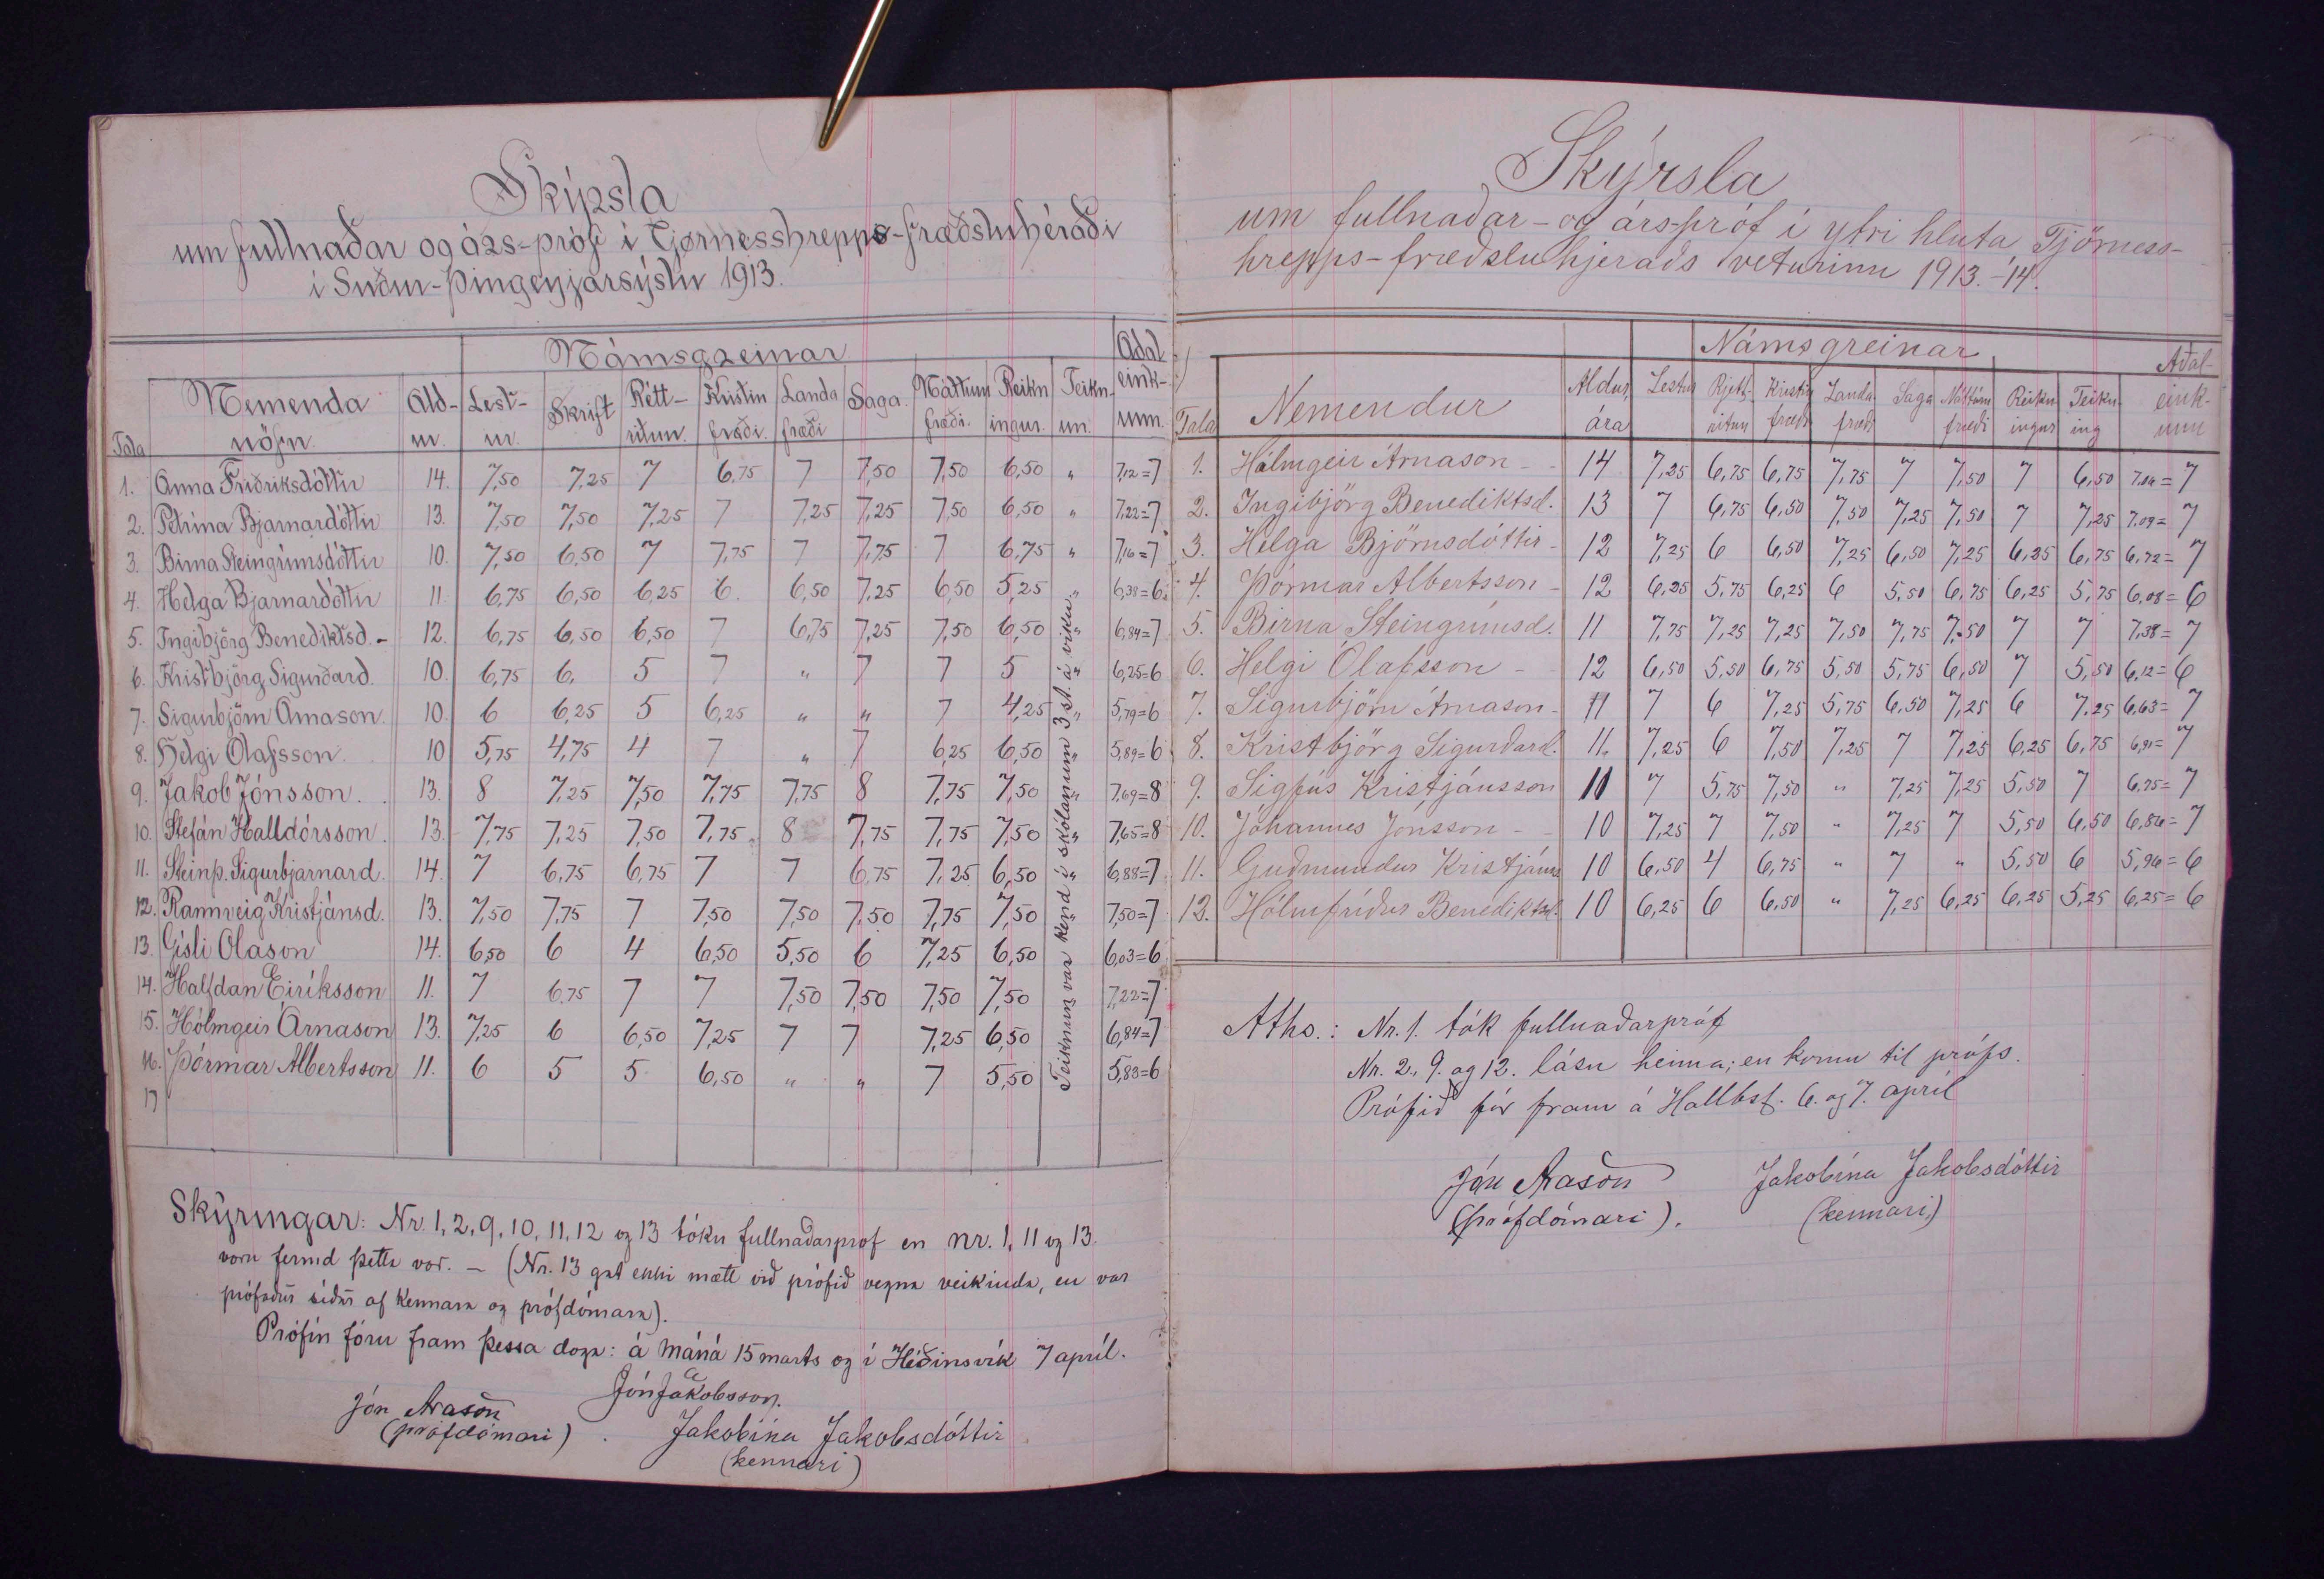 Skýrsla
um fullnaðar og árs-próf i Tjörnesshrepps-fræðsluhéraði
i Suður-Þingeyjarsýslu 1913.
Námsgreinar Aðal
Nemenda Ald- Lest- Skrift Rétt- Kristin Landa Saga. Náttúru Reikn Teikn- eink-
Tala nöfn. ur. ur. ritun. fræði. fræði fræði. ingur. un. unn.
1. Anna Friðriksdóttir 14. 7,50 7,25 7 6,75 7 7,50 7,50 6,50 " 7,12=7
2. Petrína Bjarnardóttir 13. 7,50 7,50 7,25 7 7,25 7,25 7,50 6,50 " 7,22=7
3. Birna Steingrímsdóttir 10. 7,50 6,50 7 7,75 7 7,75 7 6,75 " 7,16=7
4. Helga Bjarnardóttir 11. 6,75 6,50 6,25 6. 6,50 7,25 6,50 5,25 " 6,38=6
5. Ingibjörg Benediktsd.- 12. 6,75 6,50 6,50 7 6,75 7,25 7,50 6,50 " 6,84=7
6. Kristbjörg Sigurðard. 10. 6,75 6, 5 7 " 7 7 5 " 6,25=6
7. Sigurbjörn Árnason. 10. 6 6,25 5 6,25 " " 7 4,25 " 5,79=6
8. Helgi Ólafsson. 10 5,75 4,75 4 7 " 7 6,25 6,50 " 5,89=6
9. Jakob Jónsson. 13. 8 7,25 7,50 7,75 7,75 8 7,75 7,50 " 7,69=8
10. Stefán Halldórsson. 13. 7,75 7,25 7,50 7,75 8 7,75 7,75 7,50 " 7,65=8
11. Steinþ. Sigurbjarnard. 14. 7 6,75 6,75 7 7 6,75 7,25 6,50 " 6,88=7
12. Rannveig Kristjánsd. 13. 7,50 7,75 7 7,50 7,50 7,50 7,75 7,50 7,50=7
13. Gísli Ólason 14. 6,50 6 4 6,50 5,50 6 7,25 6,50 6,03=6
14. Halfdan Eiríksson 11. 7 6,75 7 7 7,50 7,50 7,50 7,50 7,22=7
15. Hólmgeir Árnason 13. 7,25 6 6,50 7,25 7 7 7,25 6,50 6,84=7
16. Þórmar Albertsson 11. 6 5 5 6,50 " " 7 5,50 5,83=6
17
Teiknun var kend í skólanum 3 st. á viku
Skýringar: Nr. 1, 2, 9, 10, 11, 12 og 13 tóku fullnaðarprof en nr. 1, 11 og 13.
voru fermd þetta vor. – (Nr. 13 gat ekki mætt við prófið vegna veikinda, en var
prófaður síðar af kennara og prófdómara).
Prófin fóru fram þessa daga: á Máná 15 marts og í Héðinsvík 7 apríl.
Jón Jakobsson.
Jón Arason
(prófdómari).
Jakobína Jakobsdóttir
(kennari)
Skýrsla
um fullnaðar- og árs-próf í ytri hluta Tjörness-
hrepps-fræðsluhjeraðs veturinn 1913.-'14.
Námsgreinar Aðal-
Tala Nemendur Aldur Lestur Rjett- Kristin Landa- Saga Náttúru Reikn- Teikn- eink-
ára ritun fræði fræði fræði ingur ing unn
1. Hólmgeir Árnason - 14 7,25 6,75 6,75 7,75 7 7,50 7 6,50 7.06= 7
2. Ingibjörg Benediktsd. 13 7 6,75 6,50 7,50 7,25 7,50 7 7,25 7.09= 7
3. Helga Björnsdóttir - 12 7,25 6 6,50 7,25 6,50 7,25 6,25 6,75 6,72= 7
4. Þórmar Albertsson - 12 6,25 5,75 6,25 6 5,50 6,75 6,25 5,75 6,08= 6
5. Birna Steingrímsd. 11 7,75 7,25 7,25 7,50 7,75 7,50 7 7 7,38= 7
6. Helgi Ólafsson - 12 6,50 5,50 6,75 5,50 5,75 6,50 7 5,50 6,12= 6
7. Sigurbjörn Árnason - 11 7 6 7,25 5,75 6,50 7,25 6 7.25 6,63= 7
8. Kristbjörg Sigurðard. 11. 7,25 6 7,50 7,25 7 7,25 6,25 6,75 6,91= 7
9. Sigfús Kristjánsson 11 7 5,75 7,50 " 7,25 7,25 5,50 7 6,75= 7
10. Jóhannes Jónsson - 10 7,25 7 7,50 " 7,25 7 5,50 6,50 6,86= 7
11. Guðmundur Kristjánss 10 6,50 4 6,75 " 7 " 5,50 6 5,96= 6
12. Hólmfríður Benediktsd. 10 6,25 6 6,50 " 7,25 6,25 6,25 5,25 6,25= 6
Aths.: Nr. 1. tók fullnaðarpróf
Nr. 2., 9. og 12. lásu heima; en komu til prófs.
Prófið fór fram á Hallbst. 6. og 7. apríl
Jón Arason
(prófdómari).
Jakobína Jakobsdóttir
(kennari)